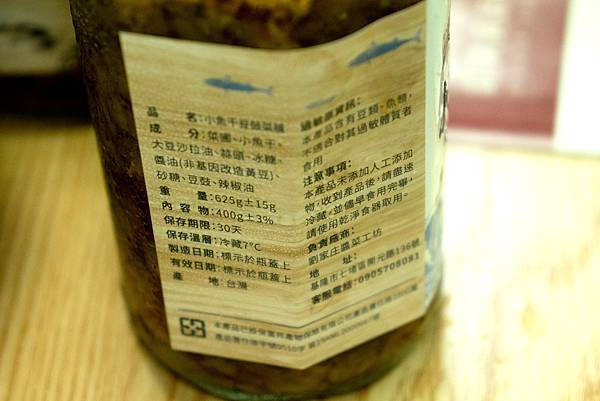 品　　名:小魚干豆豉菜脯
成　　分:菜圃、小魚干、
大豆沙拉油、蒜頭、冰糖、
醬油(非基因改造黃豆)、
砂糖、豆豉、辣椒油
重　　量:625g±15g
內 容 物:400g±3%
保存期限:30天
保存溫層:冷藏7℃
製造日期:標示於瓶蓋上
有效日期:標示於瓶蓋上
產　　地:台灣
過敏原資訊:
本產品含有豆類、魚類,
不適合對其過敏體質者
食用
注意事項:
本產品未添加人工添加
物,收到產品後,請盡速
冷藏,並儘早食用完畢,
請使用乾淨食器取用。
負責廠商:
劉家庄醬菜工坊
地　　址:
基隆市七堵區開元路136號
客服電話:0905708081
本產品已投保富邦產物保險有限公司產品責任險